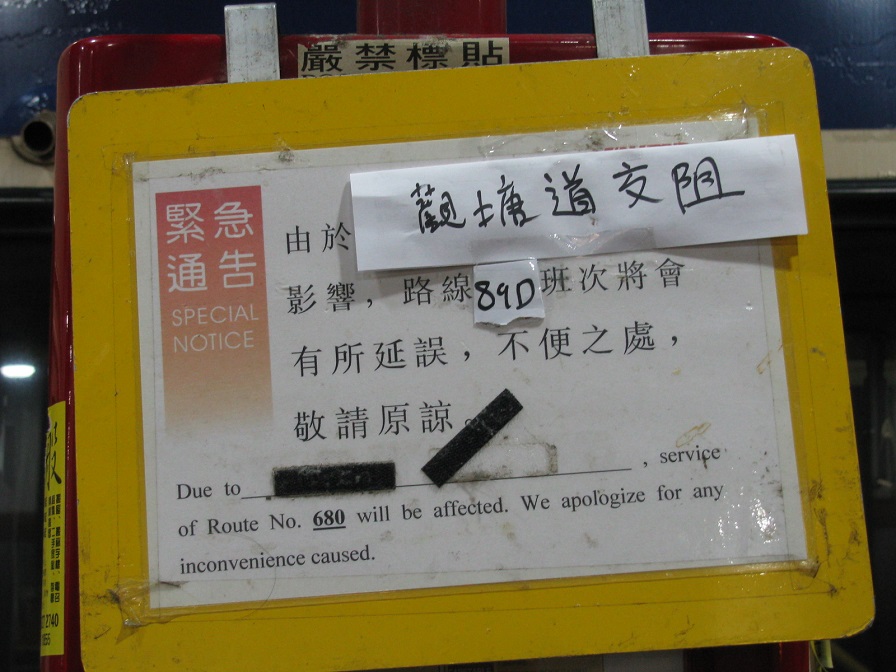 嚴禁標貼
緊急
通告
SPECIAL
NOTICE
由於 觀塘道交阻
影響，路線89D班次將會
有所延誤，不便之處，
敬請原諒。
Due to , service
of Route No. 680 will be affected. We apologize for any
inconvenience caused.
2740